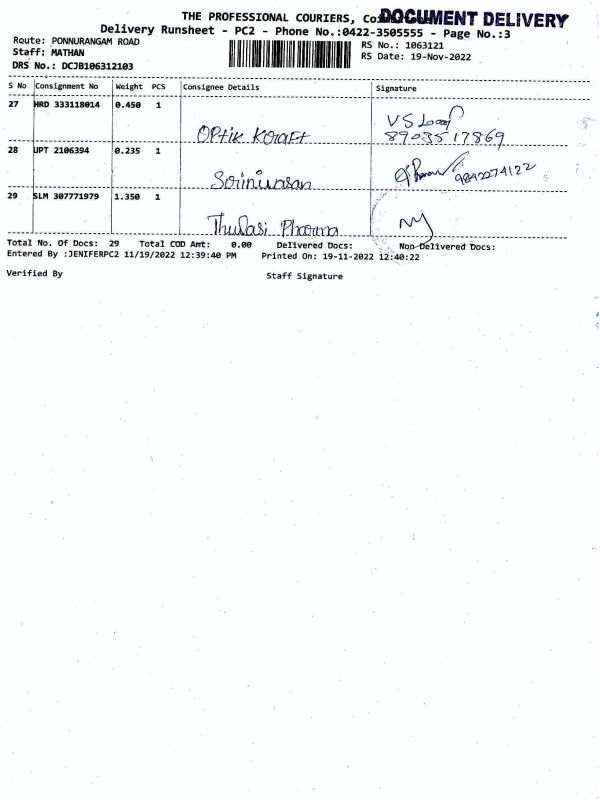 THE PROFESSIONAL COURIERS,
DOCUMENT DELIVERY
Delivery Runsheet - PC2 - Phone No.:0422-3505555 - Page No.:3
Route: PONNURANGAM ROAD
RS No.: 1063121
Staff: MATHAN
RS Date: 19-Nov-2022
DRS No.: DCJB106312103
S No Consignment No Weight PCS Consignee Details Signature
27 HRD 333118014 0.450 1
VS
Optik Kraft 8903517869
28 UPT 2106394 0.235 1
Srinivasan 9842274122
29 SLM 307771979 1.350 1
Thulasi Pharma
Total No. Of Docs: 29 Total COD Amt: 0.00 Delivered Docs: Non-Delivered Docs:
Entered By :JENIFERPC2 11/19/2022 12:39:40 PM Printed On: 19-11-2022 12:40:22
Verified By Staff Signature